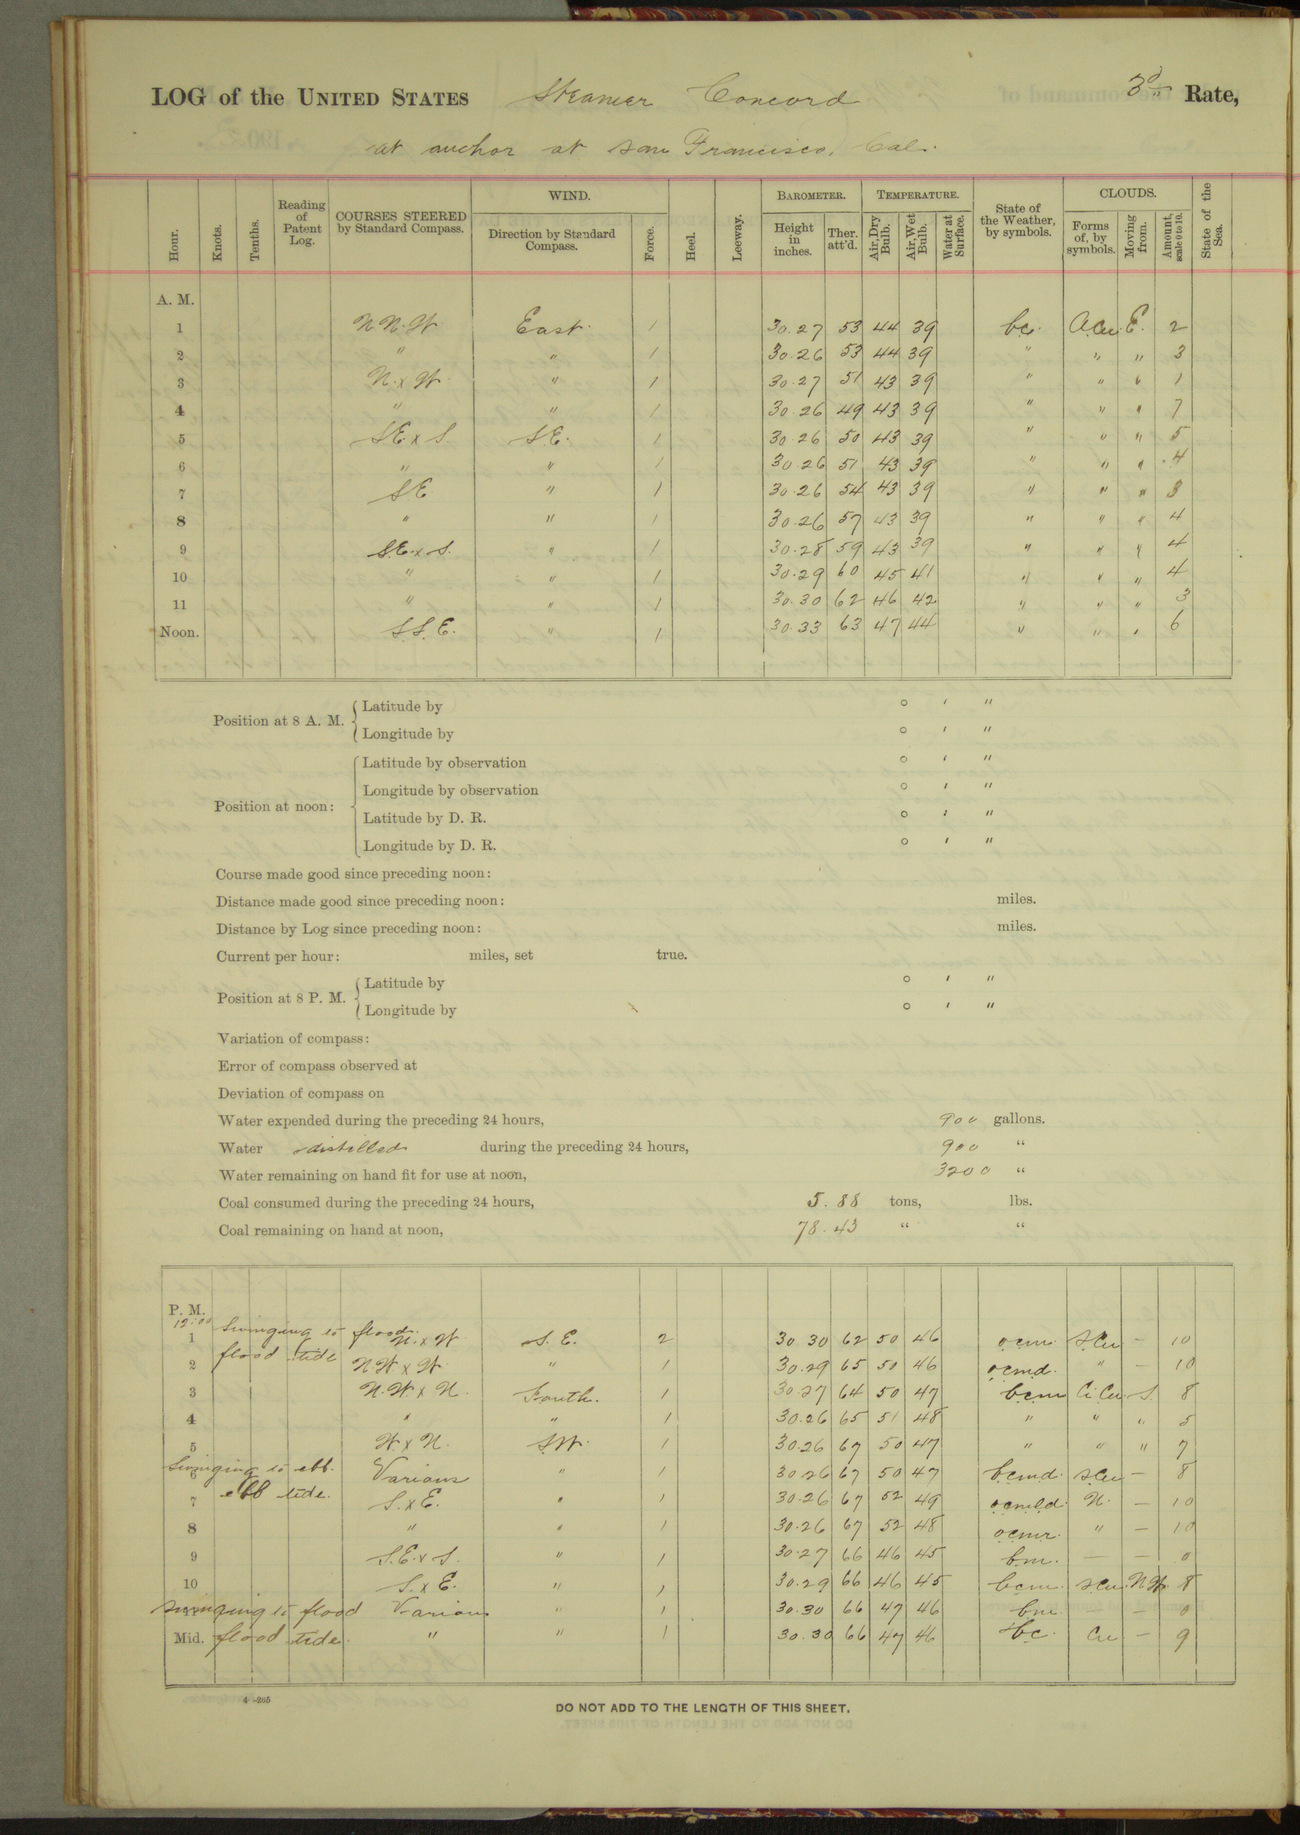 LOG of the UNITED STATES Steamer Concord 3d Rate,
at anchor at San Francisco, Cal.
Hour. Knots. Tenths. Reading of Patent Log. COURSES STEERED by Standard Compass. WIND. Direction by Standard Compass. Force. Heel. Leeway. BAROMETER. Height in inches. Ther. att'd. TEMPERATURE. Air, Dry Bulb. Air, Wet Bulb. Water at Surface. State of the Weather, by symbols. CLOUDS. Forms of, by symbols. Moving from. Amount, scale 0 to 10. State of the Sea.
A. M.
1 N N. W East. 1 30.27 53 44 39 bc. A.Cu. E. 2
2 " " 1 30.26 53 44 39 " " " 3
3 N. x W. " 1 30.27 51 43 39 " " " 1
4 " " 1 30.26 49 43 39 " " " 7
5 S.E. x S. S.E. 1 30.26 50 43 39 " " " 5
6 " " 1 30.26 51 43 39 " " " 4
7 SE " 1 30.26 54 43 39 " " " 3
8 " " 1 30.26 57 43 39 " " " 4
9 S.E. x S. " 1 30.28 59 43 39 " " " 4
10 " " 1 30.29 60 45 41 " " " 4
11 " " 1 30.30 62 46 42 " " " 3
Noon. S.S.E. " 1 30.33 63 47 44 " " " 6
Position at 8 A. M. Latitude by ° ′ ″
Longitude by ° ′ ″
Position at noon: Latitude by observation ° ′ ″
Longitude by observation ° ′ ″
Latitude by D. R. ° ′ ″
Longitude by D. R. ° ′ ″
Course made good since preceding noon:
Distance made good since preceding noon: miles.
Distance by Log since preceding noon: miles.
Current per hour: miles, set true.
Position at 8 P. M. Latitude by ° ′ ″
Longitude by ° ′ ″
Variation of compass:
Error of compass observed at
Deviation of compass on
Water expended during the preceding 24 hours, 900 gallons.
Water distilled during the preceding 24 hours, 900 "
Water remaining on hand fit for use at noon, 3200 "
Coal consumed during the preceding 24 hours, 5.88 tons, lbs.
Coal remaining on hand at noon, 78.43 " "
P. M.
12:00 Swinging to flood.
1 N. x W S. E. 2 30.30 62 50 46 ocm. S.Cu — 10
flood tide
2 NW x W. " 1 30.29 65 50 46 ocmd. " — 10
3 N.W. x N. South. 1 30.27 64 50 47 bcm Ci.Cu. S. 8
4 " " 1 30.26 65 51 48 " " " 5
5 W x N. SW. 1 30.26 67 50 47 " " " 7
Swinging to ebb.
6 Various " 1 30.26 67 50 47 bcmd. S.Cu — 8
ebb tide.
7 S. x E. " 1 30.26 67 52 49 N. — 10
8 " " 1 30.26 67 52 48 ocmr. " — 10
9 S.E. x S. " 1 30.27 66 46 45 bm. — — 0
10 S. x E. " 1 30.29 66 46 45 bcm. S.Cu. NW. 8
Swinging to flood Various " 1 30.30 66 47 46 bm. — — 0
Mid. flood tide. " " 1 30.30 66 47 46 bc. Cu — 9
4—265
DO NOT ADD TO THE LENGTH OF THIS SHEET.